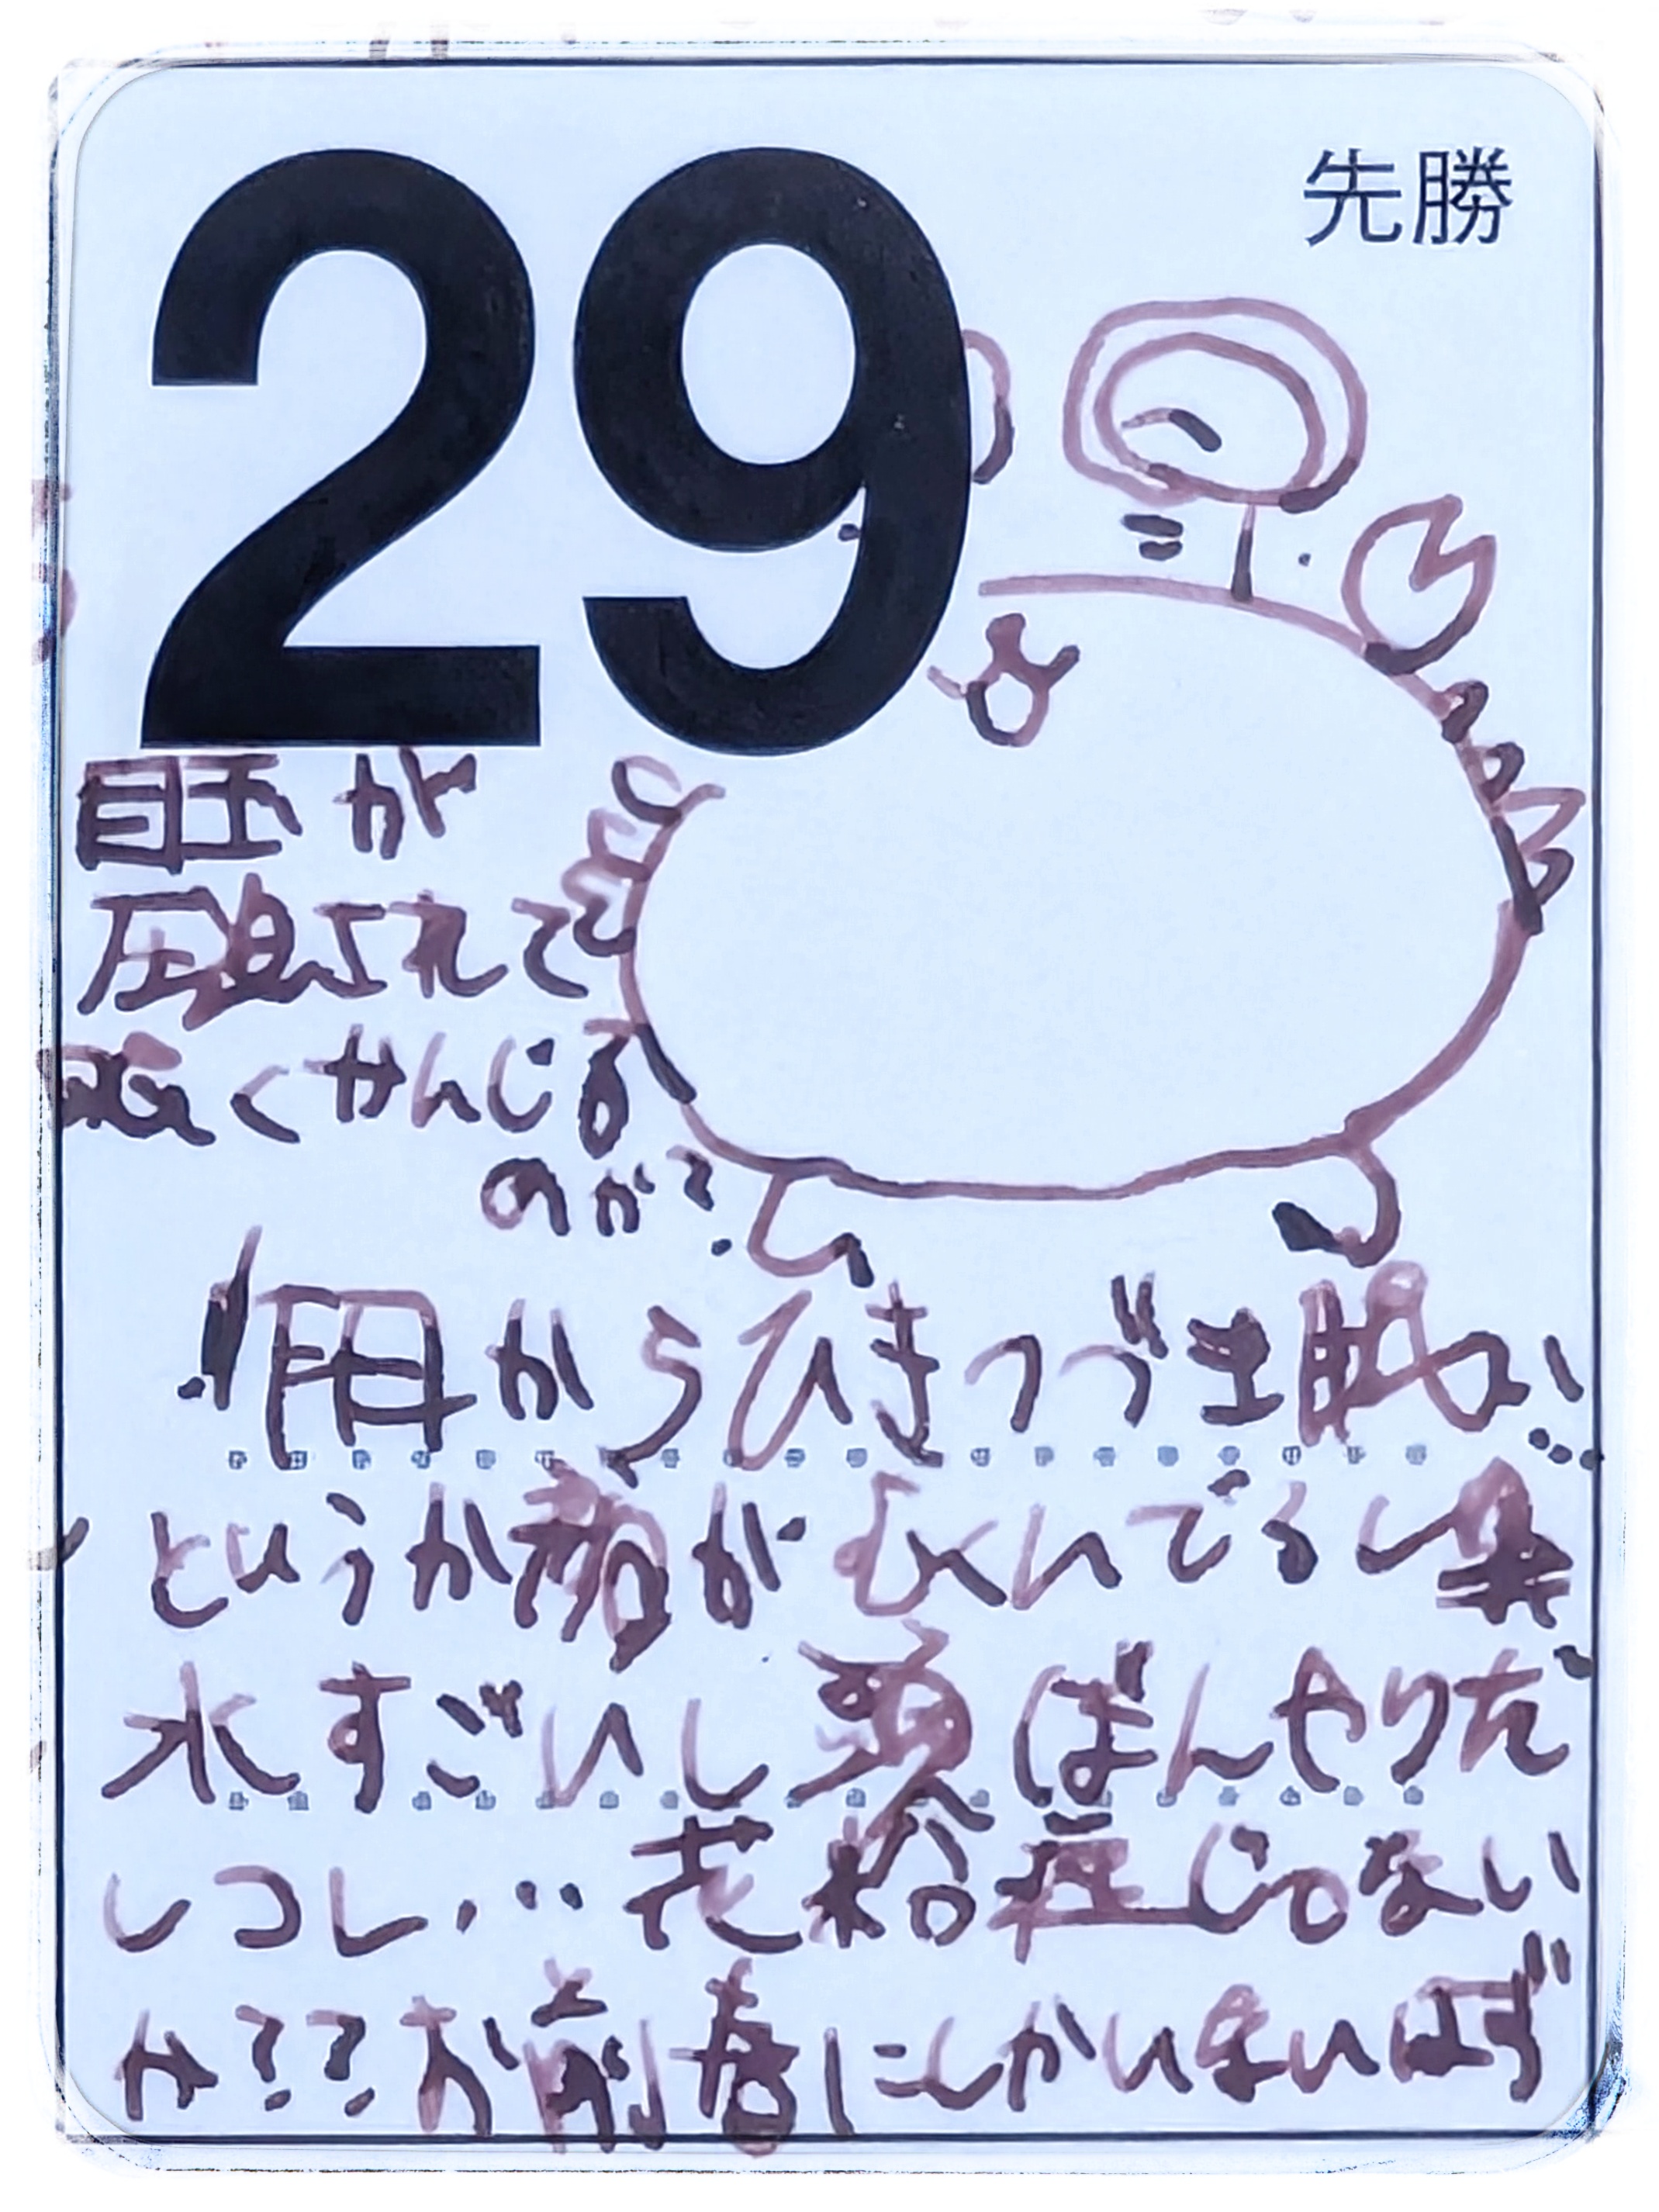 29
先勝
目玉が
圧迫されて
眠くかんじる
のか?
昨日からひきつづき眠い…
というか顔がむくんでるし鼻
水すごいし頭ぼんやりだ
しつし…花粉症じゃない
か??お前春にしかいないはず